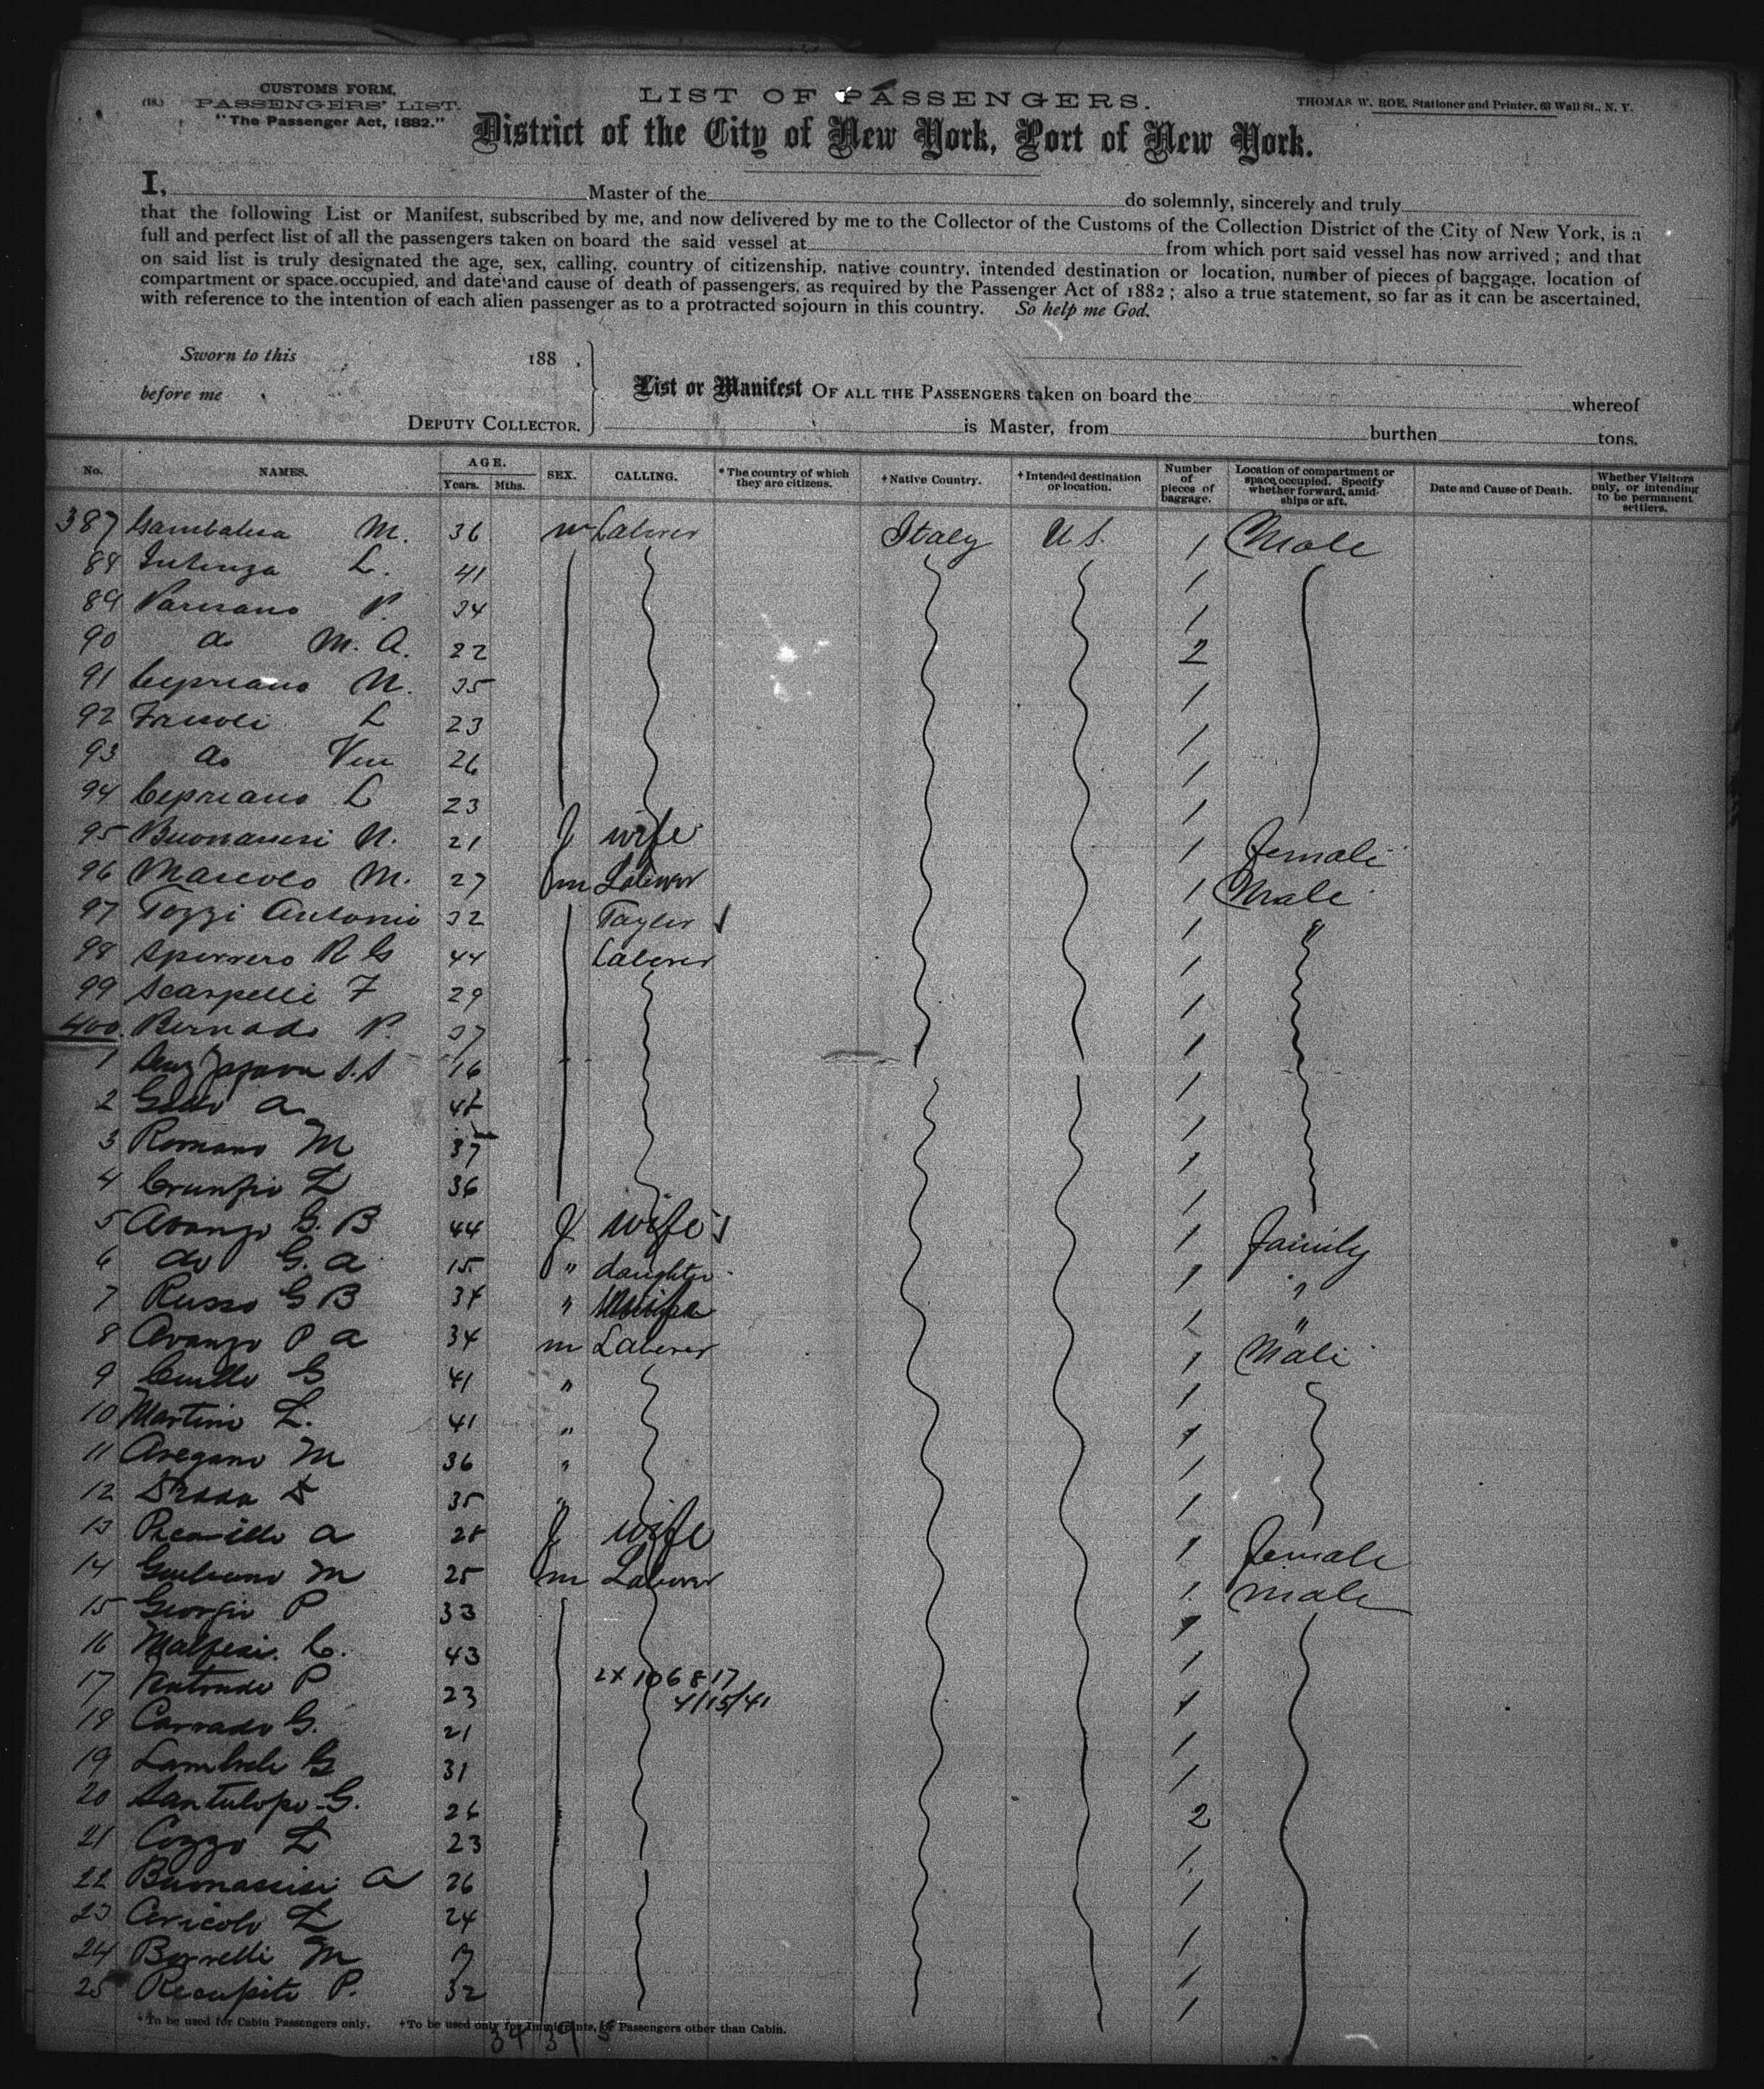 (18.)
CUSTOMS FORM,
PASSENGERS' LIST.
"The Passenger Act, 1882."
LIST OF PASSENGERS.
THOMAS W. ROE, Stationer and Printer, 63 Wall St., N. Y.
District of the City of New York, Port of New York.
I, Master of the do solemnly, sincerely and truly
that the following List or Manifest, subscribed by me, and now delivered by me to the Collector of the Customs of the Collection District of the City of New York, is a
full and perfect list of all the passengers taken on board the said vessel at from which port said vessel has now arrived; and that
on said list is truly designated the age, sex, calling, country of citizenship, native country, intended destination or location, number of pieces of baggage, location of
compartment or space occupied, and date and cause of death of passengers, as required by the Passenger Act of 1882; also a true statement, so far as it can be ascertained,
with reference to the intention of each alien passenger as to a protracted sojourn in this country. So help me God.
Sworn to this 188 ,
before me
DEPUTY COLLECTOR.
List or Manifest OF ALL THE PASSENGERS taken on board the whereof
is Master, from burthen tons.
No. NAMES. AGE. Years. Mths. SEX. CALLING. * The country of which they are citizens. + Native Country. + Intended destination or location. Number of pieces of baggage. Location of compartment or space occupied. Specify whether forward, amidships or aft. Date and Cause of Death. Whether Visitors only, or intending to be permanent settlers.
387 M. 36 m Laborer Italy U.S. 1 Male
88 L. 41 1
89 P. 34 1
90 do M. A. 22 2
91 Cepriano N. 35 1
92 L 23 1
93 do Vin 26 1
94 Cepriano L 23 1
95 N. 21 f wife 1 female
96 M. 27 m Laborer 1 Male
97 Tozzi Antonio 32 Taylor 1 "
98 R G 44 Laborer 1
99 Scarpelli F 29 1
400. Bernado P. 37 1
1 S.S 16 1
2 Gallo A 1
3 Romano M 37 1
4 L 36 1
5 Avanzo G. B 44 f wife 1 family
6 do G. A 15 " daughter 1 "
7 Russo G B 34 " 1 "
8 Avanzo P A 34 m Laborer 1 Male
9 G 41 " 1
10 Martino L. 41 " 1
11 Aregano M 36 " 1
12 Strada 35 " 1
13 A 28 f wife 1 female
14 Giuliano M 25 m Laborer 1 male
15 Giorgio P 33 1
16 C. 43 1
17 P 23 2X 106817 1
4/15/41
18 Corrado G. 21 1
19 G 31 1
20 Santulopo G. 26 2
21 Cozzo L 23 1
22 Buonassisi A 26 1
23 Aricolo L 24 1
24 Borrelli M 1
25 Recupito P. 32 1
* To be used for Cabin Passengers only. + To be used only for Immigrants, or Passengers other than Cabin.
34 39 5